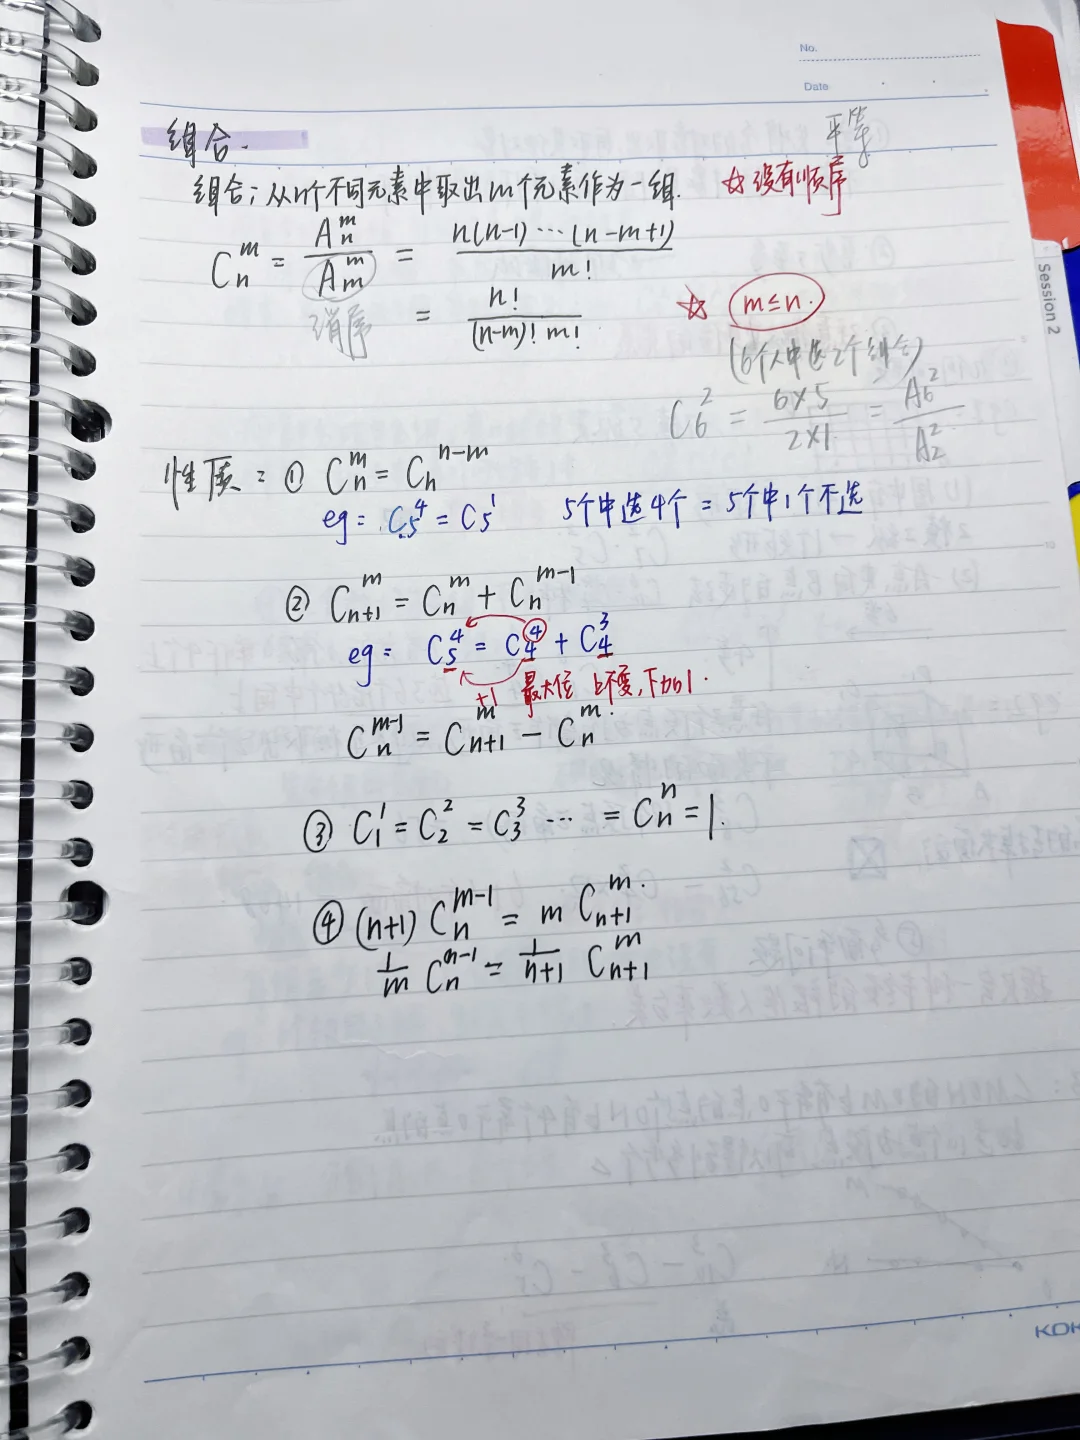 No.
Date
组合.
平等
组合; 从n个不同元素中取出m个元素作为一组. ☆没有顺序
C_n^m = A_n^m / A_m^m = n(n-1)⋯(n-m+1) / m!
消序 = n! / (n-m)! m!
☆ m≤n.
(6个人中选2个组合)
C_6^2 = 6×5 / 2×1 = A_6^2 / A_2^2
性质: ① C_n^m = C_n^{n-m}
eg: C_5^4 = C_5^1 5个中选4个 = 5个中1个不选
② C_{n+1}^m = C_n^m + C_n^{m-1}
eg: C_5^4 = C_4^④ + C_4^3
+1 最大位 上不变,下加1.
C_n^{m-1} = C_{n+1}^m - C_n^m.
③ C_1^1 = C_2^2 = C_3^3 ⋯ = C_n^n = 1.
④ (n+1) C_n^{m-1} = m C_{n+1}^m.
1/m C_n^{m-1} = 1/n+1 C_{n+1}^m
Session 2
KOK